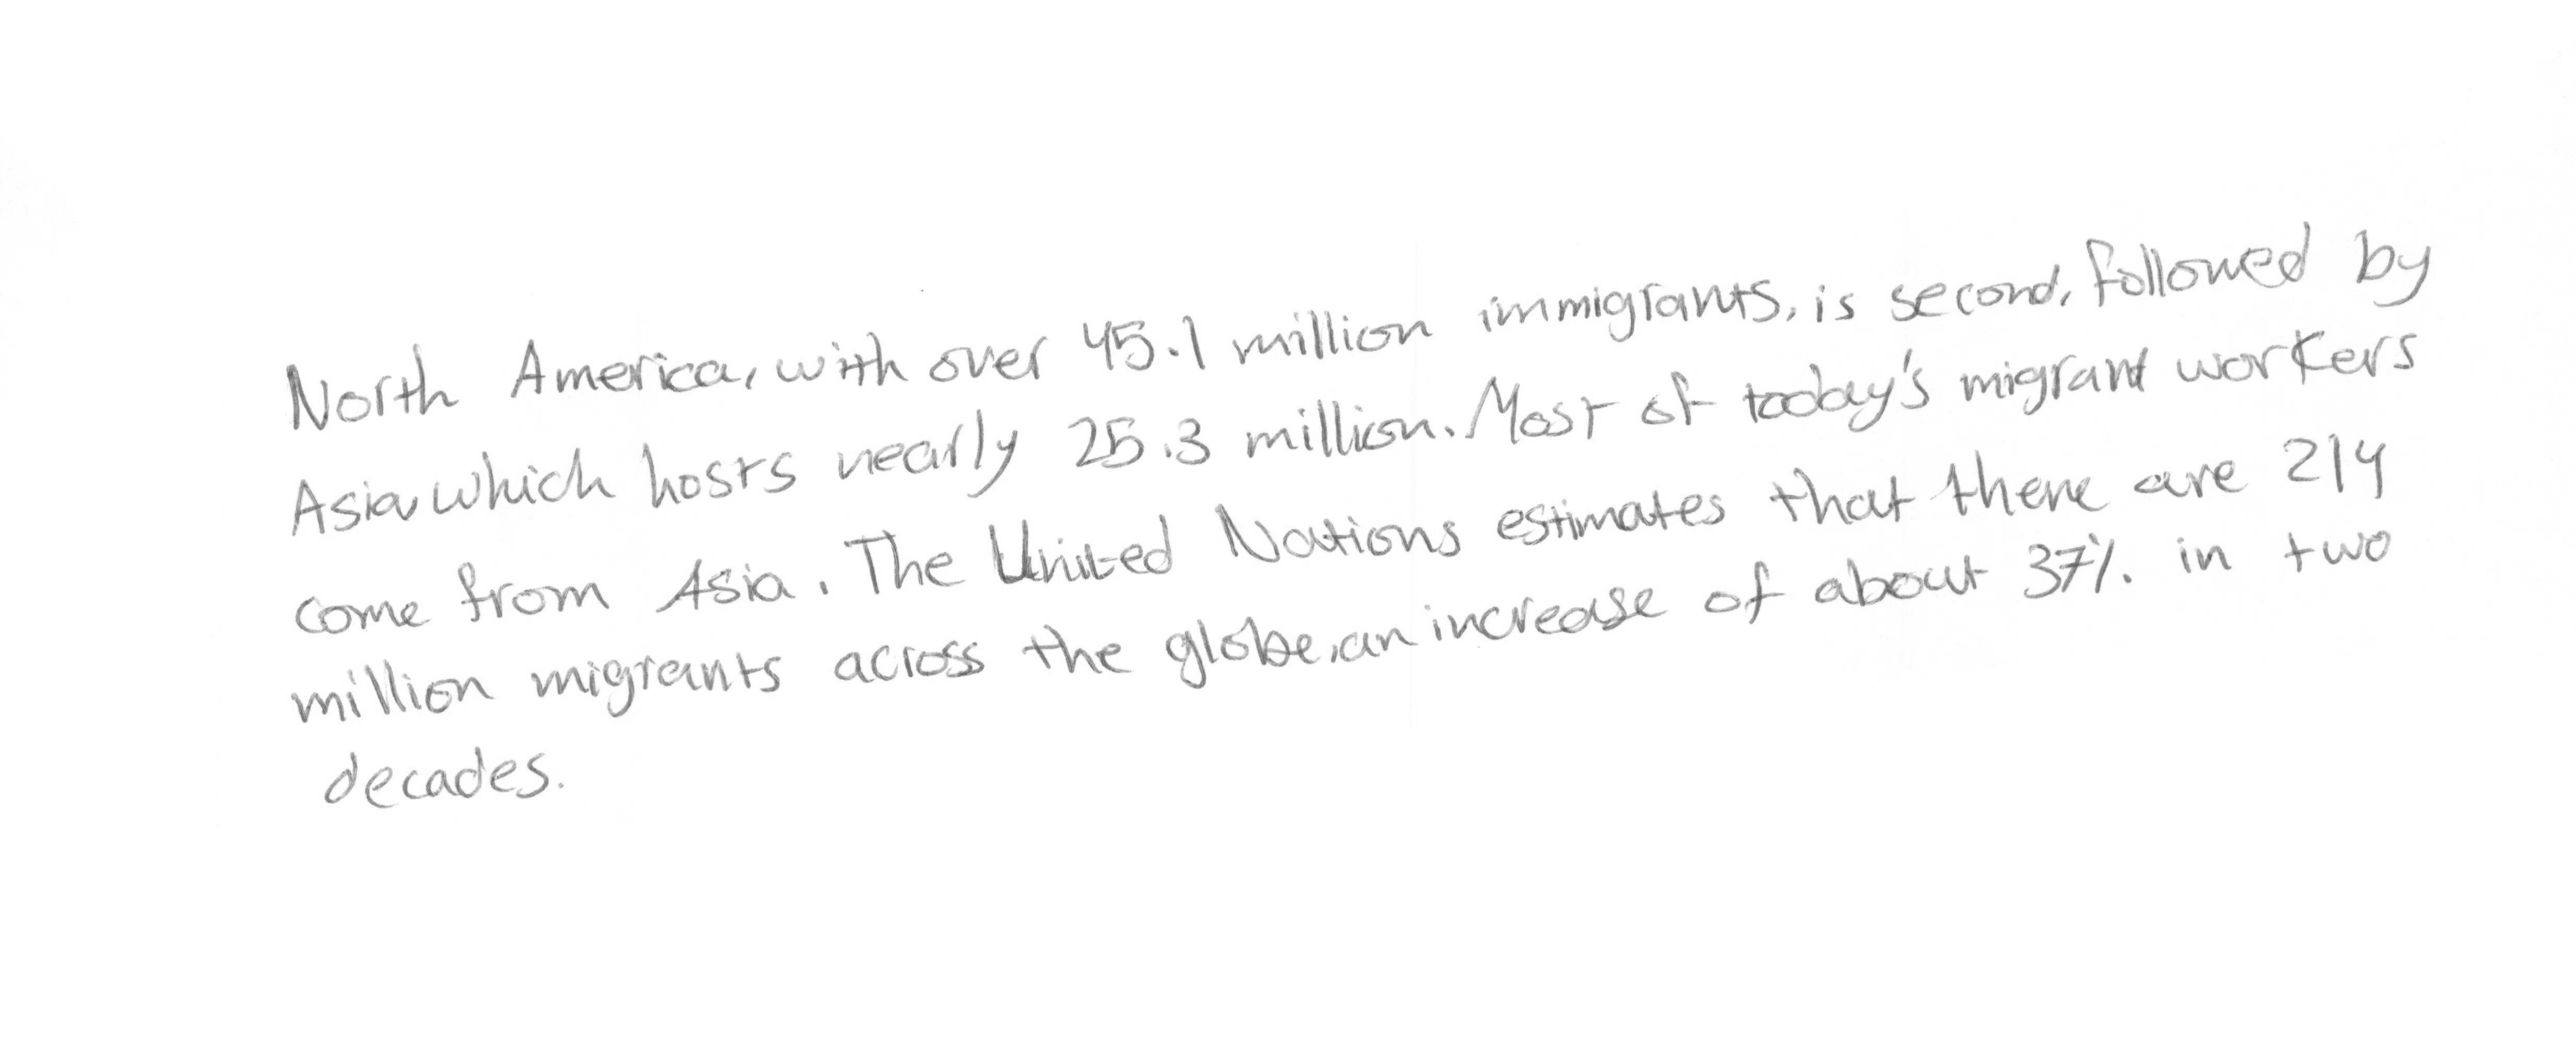 North America, with over 45.1 million immigrants, is second, followed by
Asia which hosts nearly 25.3 million. Most of today's migrant workers
come from Asia. The United Nations estimates that there are 214
million migrants across the globe, an increase of about 37% in two
decades.